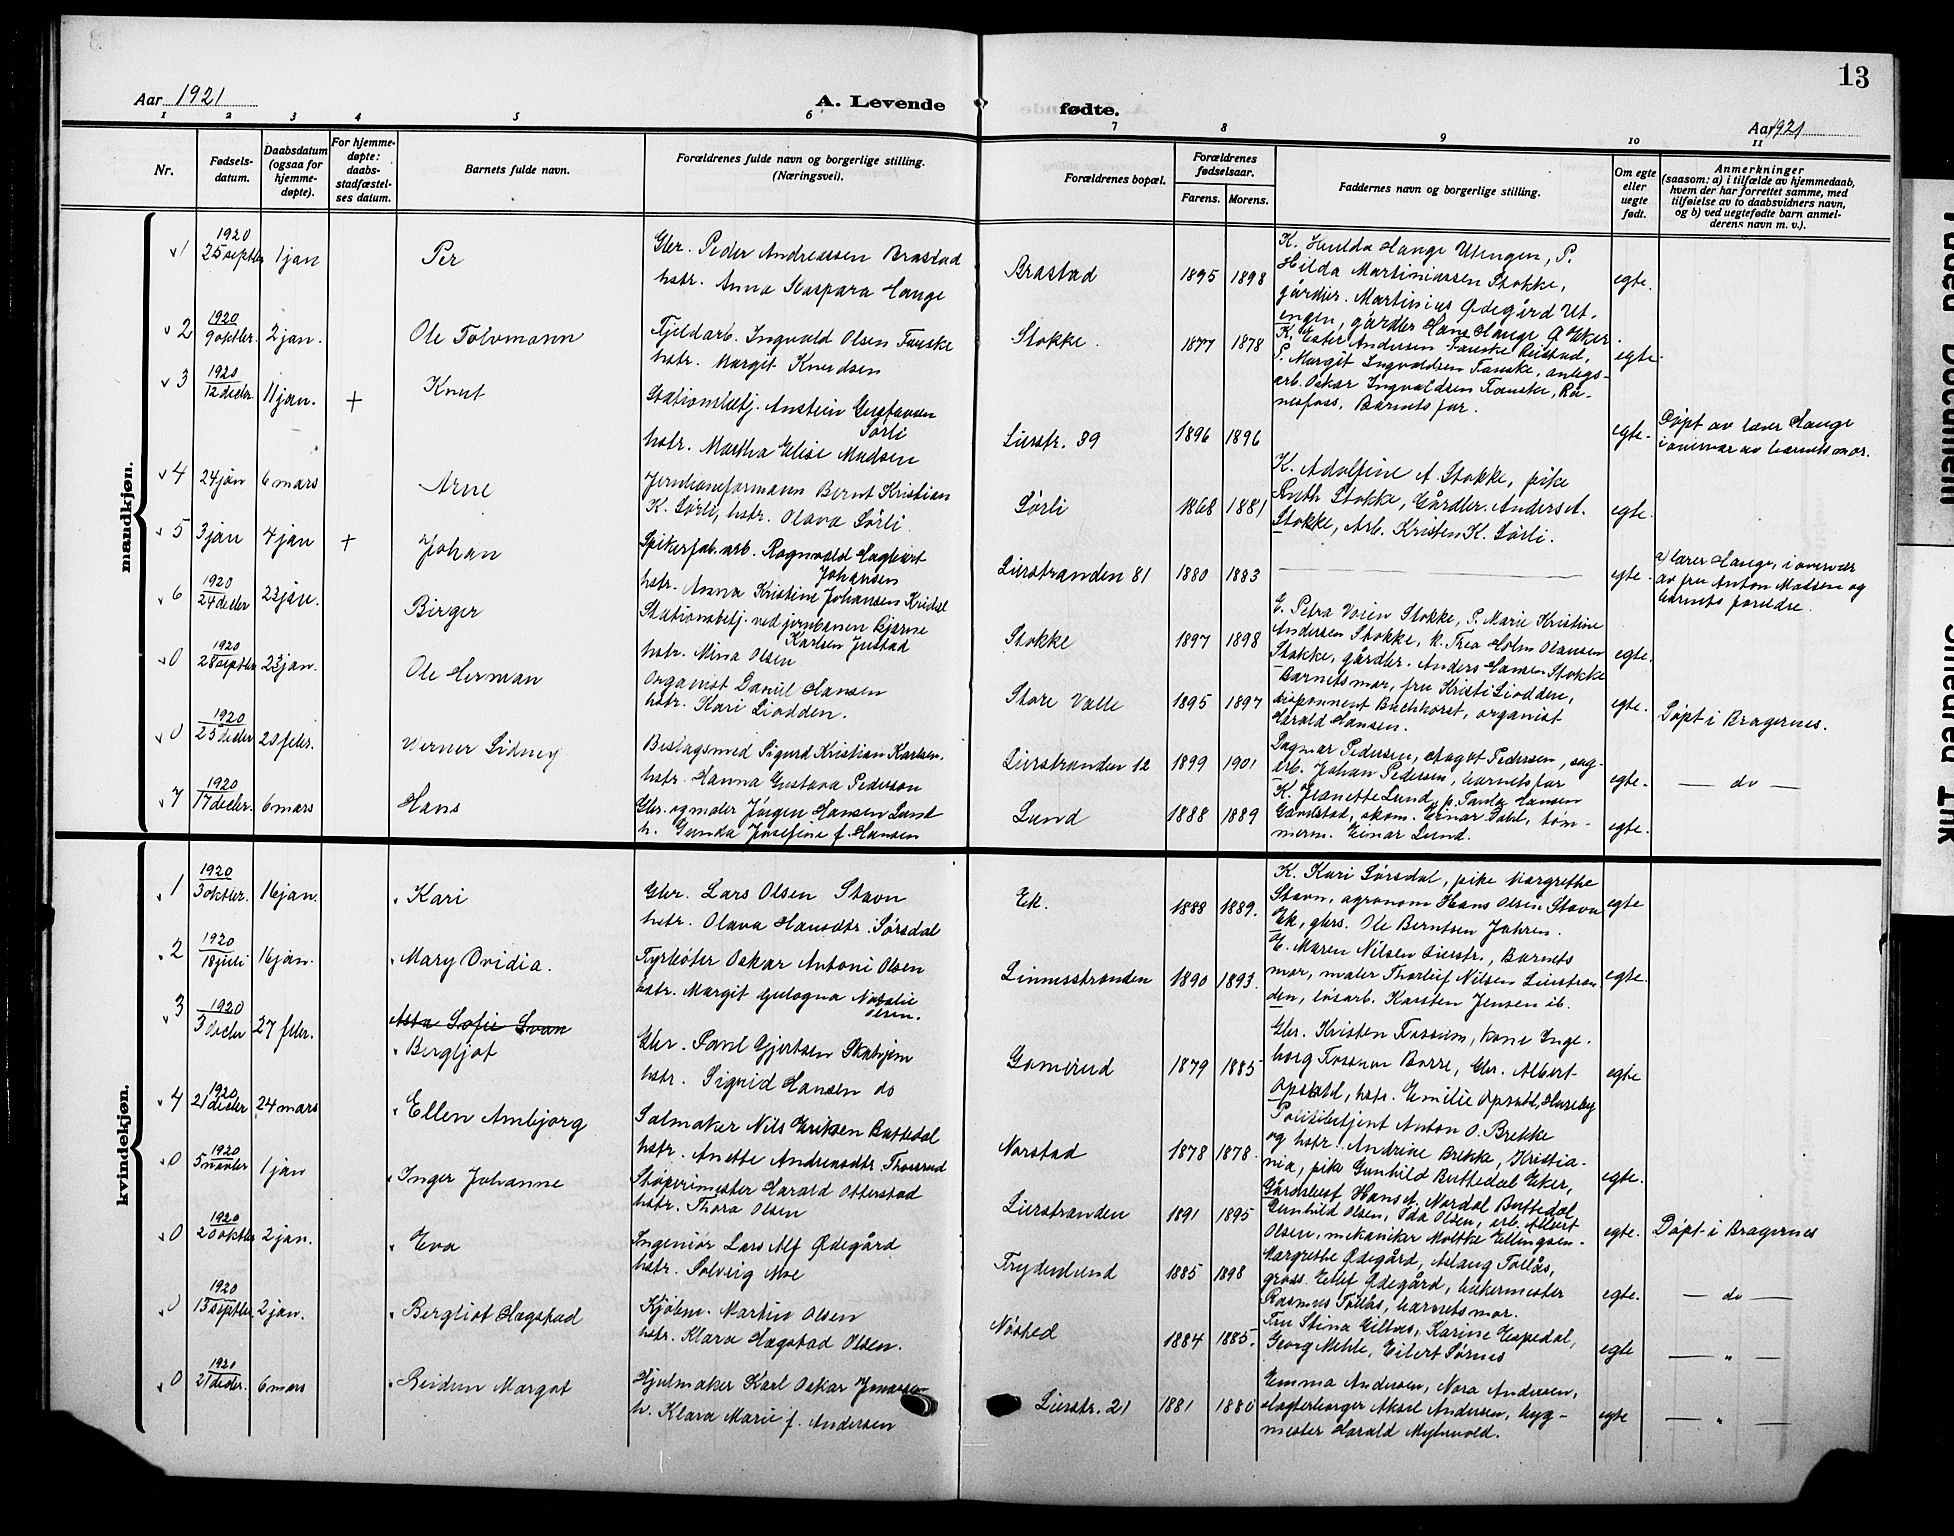 Aar 1921
A. Levende fødte.
13
Aar 1921
1 2 3 4 5 6 7 8 9 10 11
Nr.
Fødsels-
datum.
Daabsdatum
(ogsaa for
hjemme-
døpte).
For hjemme-
døpte:
daabs-
stadfæstel-
ses datum.
Barnets fulde navn.
Forældrenes fulde navn og borgerlige stilling.
(Næringsvei).
Forældrenes bopæl.
Forældrenes
fødselsaar.
Farens. Morens.
Faddernes navn og borgerlige stilling.
Om egte
eller
uegte
født.
Anmerkninger
(saasom: a) i tilfælde av hjemmedaab,
hvem der har forrettet samme, med
tilføielse av to daabsvidners navn,
og b) ved uegtefødte barn anmel-
derens navn m. v.).
mandkjøn.
1 1920 25 septbr 1 jan Per
Gbr. Peder Andreassen Brastad
hstr. Anna Kaspara Hauge
Brastad 1895 1898
K. Hulda Hauge Utengen, P.
Hilda Martiniussen Stokke,
gårdbr. Martinius Ødegård Ut-
engen, gårdbr Hans Hauge Ø Eker.
egte.
2 1920 9 oktbr. 2 jan. Ole Tolvmann
Fjeldarb. Ingvald Olsen Fauske
hstr. Margit Knudsen
Stokke. 1877 1878
K. Ester Andersen Fauske Reistad,
P. Margit Ingvaldsen Fauske, anlegs-
arb. Oskar Ingvaldsen Fauske, Rå-
nesfoss, Barnets far.
egte.
3 1920 12 decbr. 11 jan. + Knut
Stationsbetj. Anstein Gustavsen
Sørli
hstr. Martha Elise Madsen
Lierstr. 39 1896 1896
egte.
Døpt av lærer Hauge
i overvær av barnets mor.
4 24 jan 6 mars Arne
Jernbaneformann Bernt Kristian
K. Sørli, hstr. Olava Sørli.
Sørli 1868 1881
K. Adolfine A. Stokke, pike
Ruth Stokke, Gårdbr. Anders A.
Stokke, Arb. Kristen K. Sørli.
egte.
5 3 jan 4 jan + Johan
Spikerfab. arb. Ragnvald Hagbart
Johansen
hstr. Anna Kristine Johansen Kridsl
Lierstranden 81 1880 1883 —
egte.
a) lærer Hauge, i overvær
av fru Anton Madsen og
barnets forældre.
6 1920 24 decbr 23 jan. Birger
Stationsbetj. ved jernbanen Bjarne
Karlsen Justad
hstr. Mina Olsen
Stokke 1897 1898
G. Petra Voien Stokke, P. Marie Kristine
Andersen Stokke, K. Trea Holm Olausen
Stokke, gårdbr. Anders Hansen Stokke
egte.
0 1920 28 septbr 23 jan. Ole Herman
Organist Daniel Hansen
hstr. Kari Liodden.
Store Valle 1895 1897
Barnets mor, fru Kristi Liodden,
disponent Buchhorst, organist
Harald Hansen.
egte.
Døpt i Bragernes.
0 1920 25 decbr 20 febr. Verner Sidney
Beslagsmed Sigurd Kristian Karlsen.
hstr. Hanna Gustava Pederson
Lierstranden 12 1899 1901
Dagmar Pedersen, Aagot Pedersen, sag-
arb. Johan Pedersen, barnets far
egte.
— do —
7 1920 17 decbr. 6 mars Hans
Gbr. og maler Jørgen Hansen Lund
h. Gunda Josefine f. Hansen
Lund 1888 1889
K. Jeanette Lund, p. Paula Hansen
Gundstad, skom. Einar Dahl, tøm-
merm. Einar Lund.
egte.
kvindekjøn.
1 1920 3 oktbr. 16 jan. Kari
Gbr. Lars Olsen Stavn
hstr. Olava Hansdtr. Sørsdal
Ek. 1888 1889.
K. Kari Sørsdal, pike Margrethe
Stavn, agronom Hans Olsen Stavn
Ek, gbrs. Ole Berntsen Jahren.
egte
2 1920 18 juli 16 jan. Mary Ovidia.
Fyrbøter Oskar Antoni Olsen
hstr. Margit Gulogna Natalie
Olsen.
Linnesstranden 1890 1893.
G. Maren Nilsen Lierstr., Barnets
mor, maler Thorleif Nilsen Lierstran
den, løsarb. Karsten Jensen ib.
egte.
3 1920 3 decbr 27 febr. Asta Sofie Svan
Bergljot
Gbr. Paul Gjertsen Skabjem
hstr. Sigrid Hansen do
Gomerud 1879 1885
Gbr. Kristen Fossum, kone Inge-
borg Fossum Borre, Gbr. Albert
Opsahl, hstr. Emilie Opsahl, Huseby
egte
4 1920 21 decbr 24 mars Ellen Ambjørg
Salmaker Nils Eriksen Buttedal
hstr. Anette Andreasdtr. Thorsrud
Norstad 1878 1878.
Politibetjent Anton O. Brekke
og hstr. Andrine Brekke, Kristia-
nia, pike Gunhild Buttedal Eker,
Gårdsbest Hans A. Nordal Buttedal
egte.
0 1920 5 novbr 1 jan Inger Johanne
Støperimester Harald Otterstad
hstr. Thora Olsen
Lierstranden 1891 1895
Gunhild Olsen, Ida Olsen, arb. Albert
Olsen, mekaniker Moltke Ellingsen.
egte.
Døpt i Bragernes
0 1920 20 oktbr 2 jan. Eva
Ingeniør Lars Alf Ødegård
hstr. Solveig Moe
Frydenlund 1885 1898
Margrethe Ødegård, Aslaug Tollås,
gross. Eilif Ødegård, bakermester
Rasmus Tollås, barnets mor.
egte.
— do —
0 1920 13 septbr 2 jan. Bergliot Hægstad
Kjøbm. Martin Olsen
hstr. Klara Hægstad Olsen.
Nøsted 1884 1885.
Fru Stina Eilbæs, Karine Espedal,
Georg Mehle, Eilert Sørnes
egte
— " —
0 1920 21 decbr. 6 mars Reidun Margot
Hjulmaker Karl Oskar Jonassen
h. Klara Marie f. Andersen
Lierstr. 21 1881 1880
Emma Andersen, Nora Andersen,
Haaterborger Aksel Andersen, byg-
mester Harald Myhrvold.
egte
— " —
Faded Document
Smeared Ink